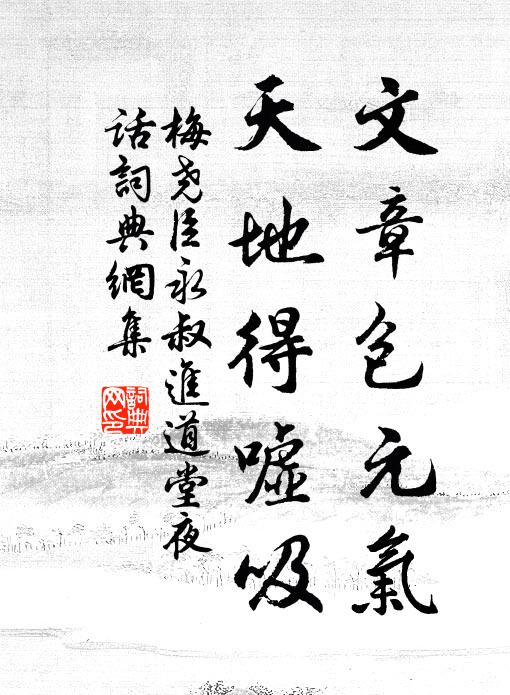 文章包元氣
天地得噓吸
梅堯臣永叔進道堂夜
話詞典網集
詞典
网印